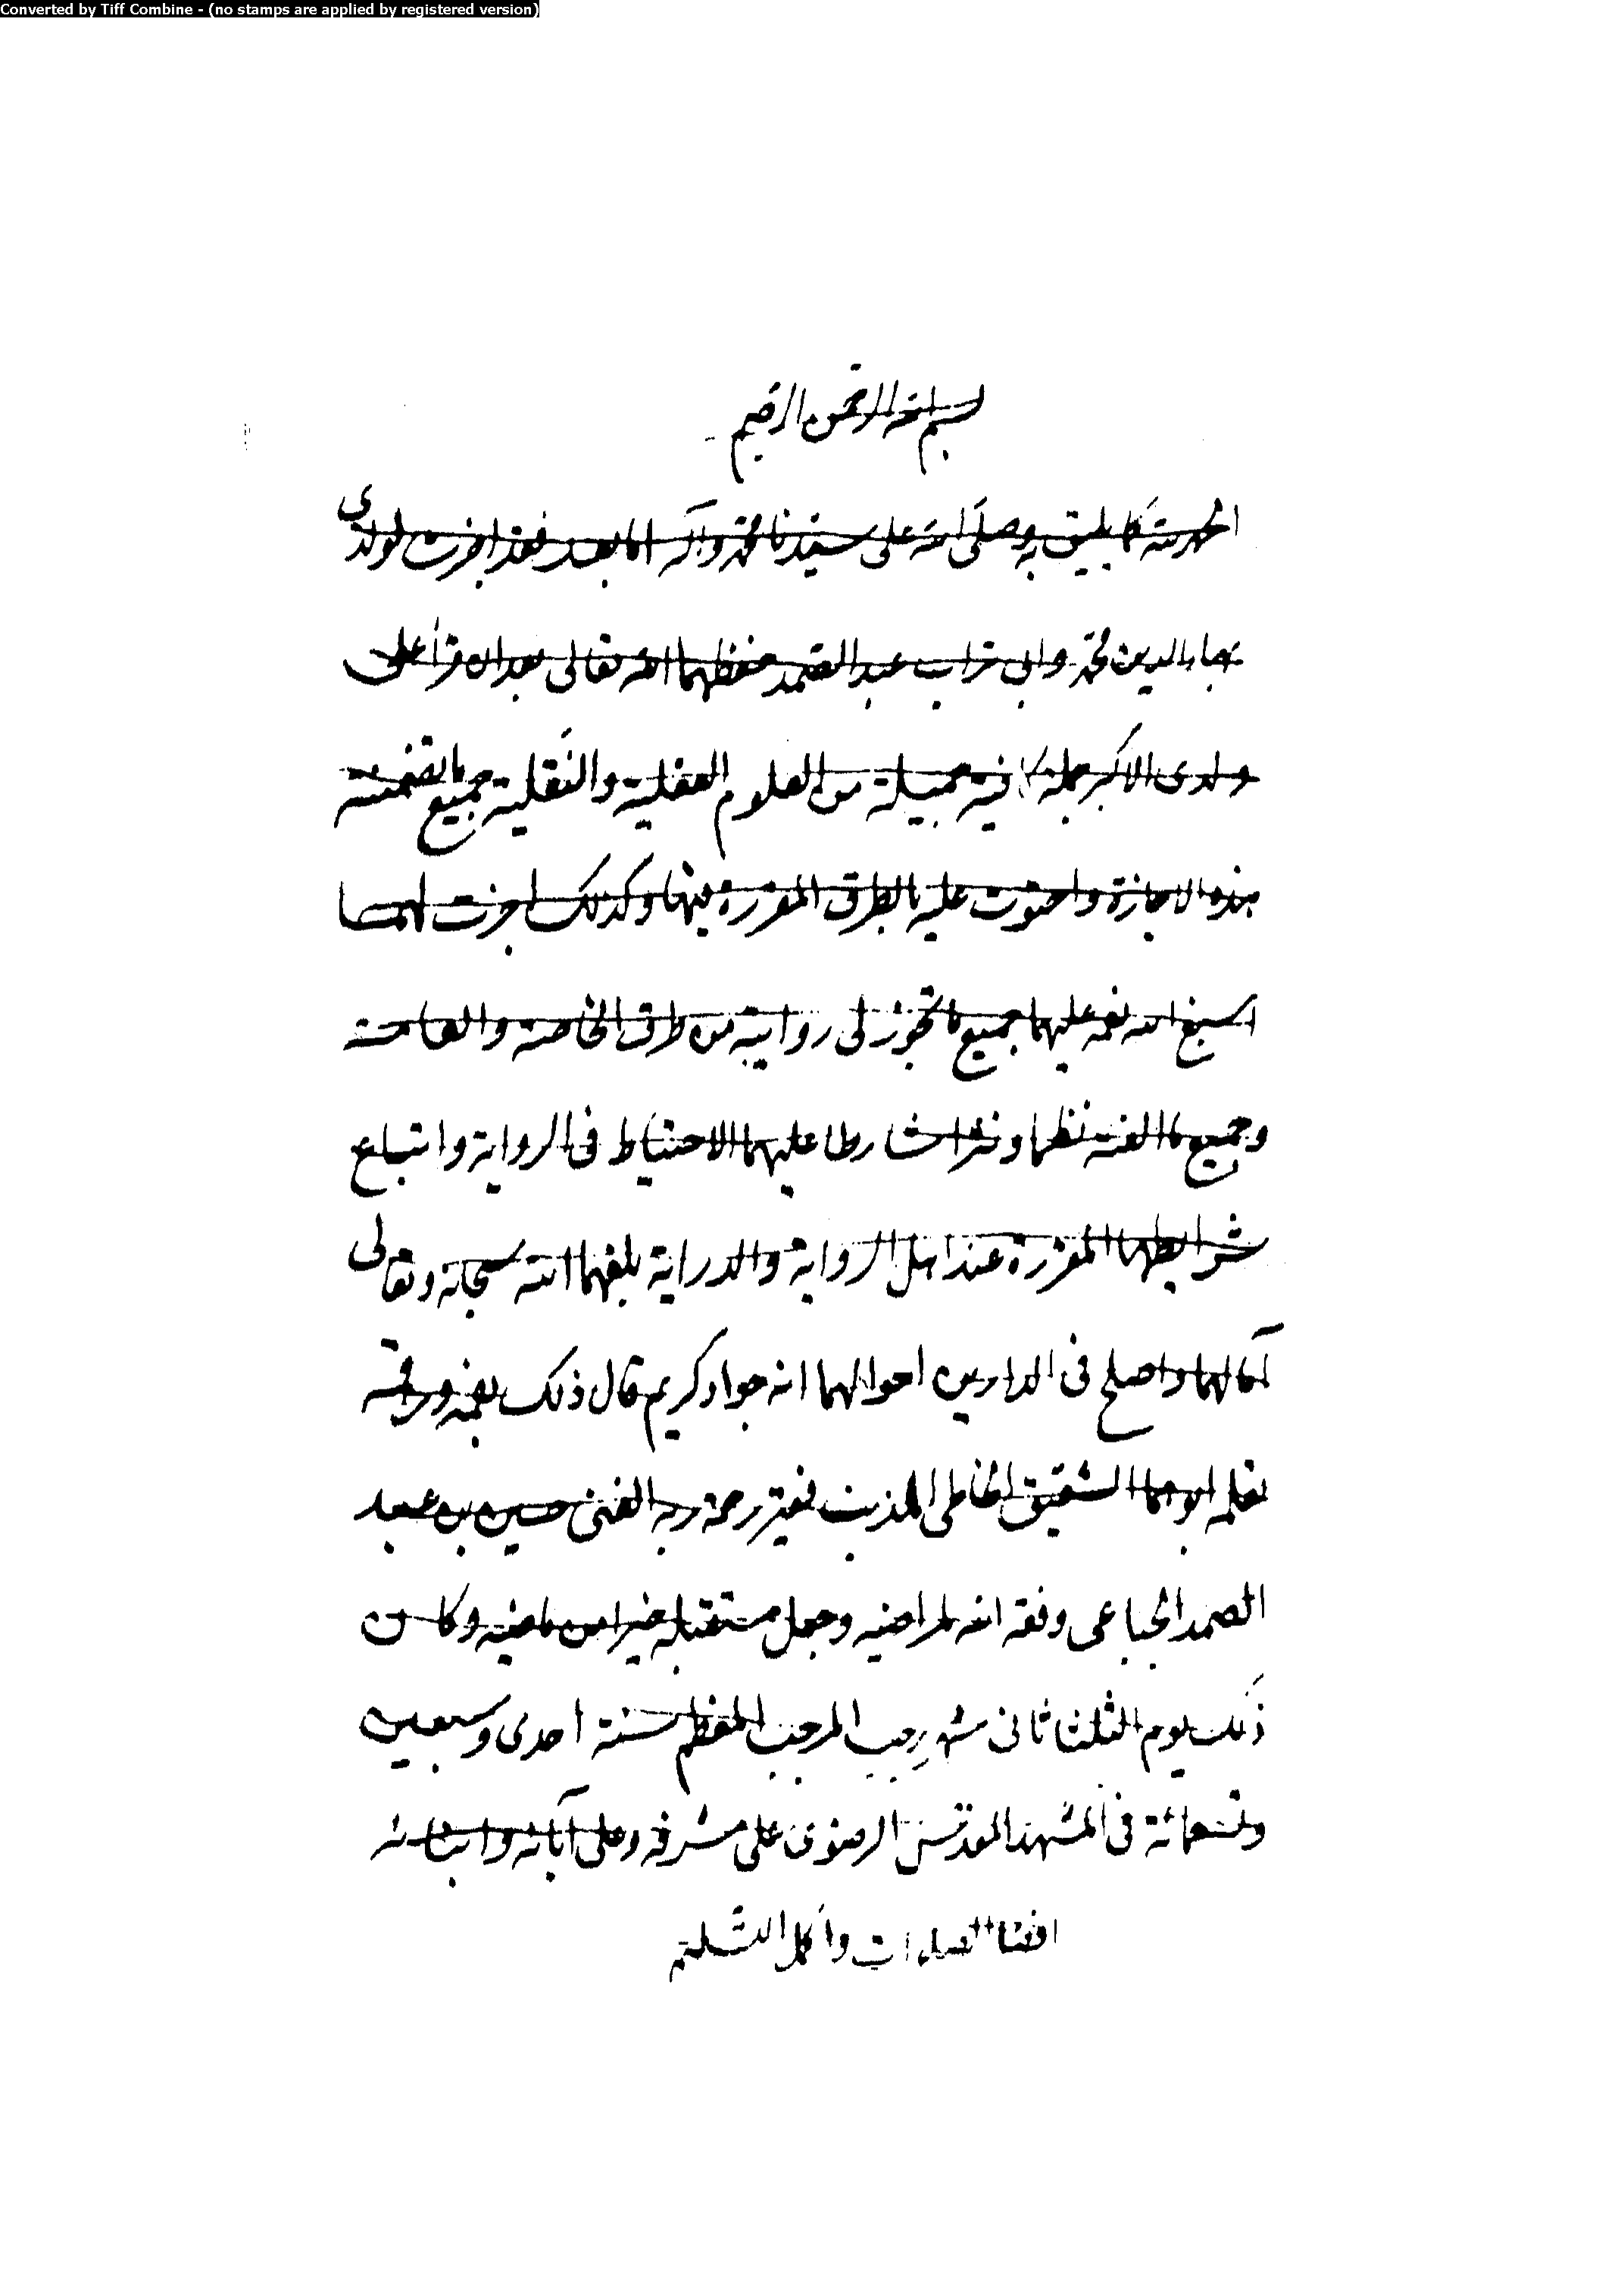 Converted by Tiff Combine - (no stamps are applied by registered version)
بسم الله الرحمن الرحيم
الحمد لله كما يليق به وصلى الله على سيدنا محمد وآله اما بعد فقد اجزت لولدى
بهاء الدين محمد وابى تراب عبد الصمد حفظهما الله تعالى بعد ان قرأ على
ولدى الاكبر جملة كافية جميلة من العلوم العقلية والنقلية جميع ما تضمنته
هذه الاجازة واحتوت عليه بالطرق المقررة فيها وكذلك اجزت لهما
اسبغ الله نعمه عليهما جميع ما تجوز لى روايته من طرق الخاصة والعامة
وجميع ما الفته نظما ونثرا شارطا عليهما الاحتياط فى الرواية واتباع
شرايطها المقررة عند اهل الرواية والدراية بلغهما الله سبحانه وتعالى
آمالهما واصلح فى الدارين احوالهما انه جواد كريم قال ذلك بفمه ورقمه
بقلمه ابوهما الشفيق الخاطى المذنب فقير رحمة ربه الغنى حسين بن عبد
الصمد الجباعى وفقه الله لمراضيه وجعل مستقبله خيرا من ماضيه وكان
ذلك يوم الثلثا ثانى شهر رجب المرجب المعظم سنة احدى وسبعين
وتسعمائة فى المشهد المقدس الرضوى على مشرفه وعلى آبائه وابنائه
افضل الصلوات واكمل التسليم